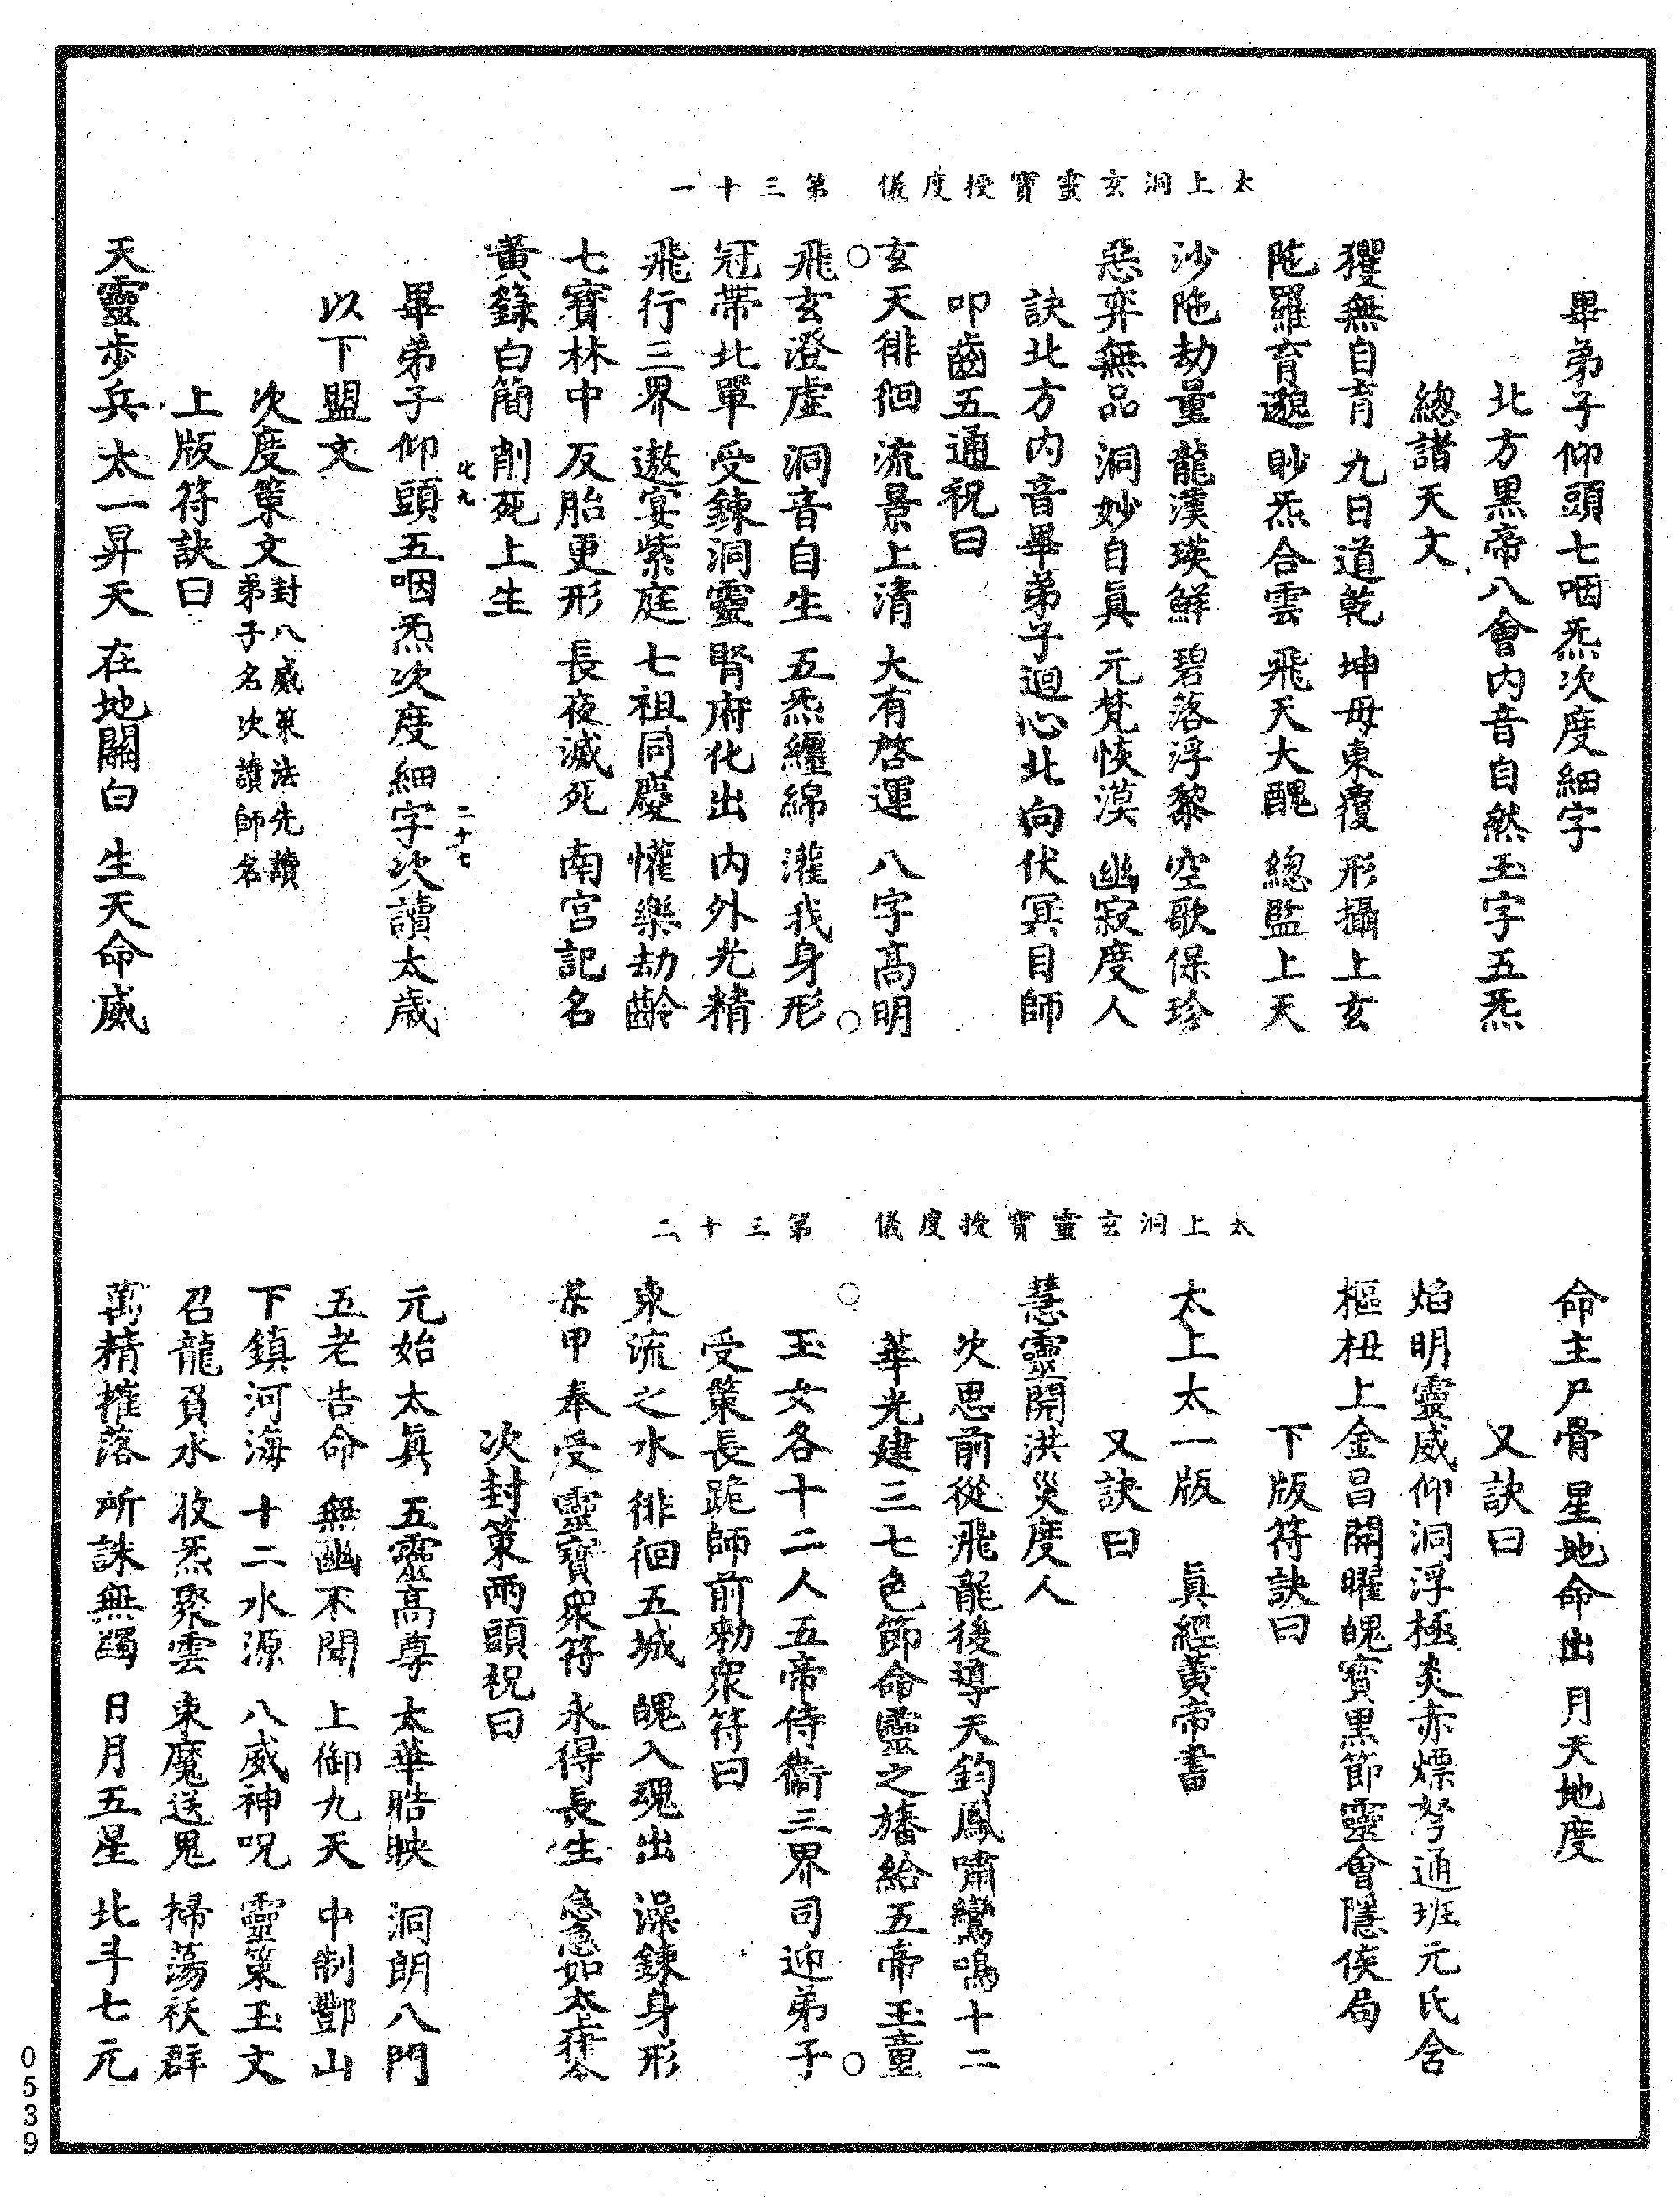 太上洞玄靈寶授度儀　第三十一
畢弟子仰頭七咽炁次度細字
北方黑帝八會内音自然玉字五炁
總諸天文
玃無自育　九日道乾　坤母東覆　形攝上玄
陁羅育邈　眇炁合雲　飛天大醜　總監上天
沙陁劫量　龍漢瑛鮮　碧落浮黎　空歌保珍
惡弈無品　洞妙自真　元梵恢漠　幽寂度人
訣北方内音畢弟子迴心北向伏冥目師
叩齒五通祝曰
玄天徘徊　流景上清　大有啓運　八字高明
飛玄澄虛　洞音自生　五炁纏綿　灌我身形
冠帶北單　受鍊洞靈　腎府化出　内外光精
飛行三界　遨宴紫庭　七祖同慶　懽樂劫齡
七寶林中　反胎更形　長夜滅死　南宮記名
黃籙白簡　削死上生
二十七
畢弟子仰頭五咽炁次度細字次讀太歲
以下盟文
次度策文封八威策法先讀
弟子名次讀師名
上版符訣曰
天靈步兵　太一昇天　在地關白　生天命威
太上洞玄靈寶授度儀　第三十二
命主尸骨　星地命出　月天地度
又訣曰
焰明靈威仰洞浮極炎赤熛弩通班元氏含
樞杻上金昌開曜魄寶黑節靈會隱侯局
下版符訣曰
太上太一版　真經黃帝書
又訣曰
慧靈開洪災度人
次思前從飛龍後導天鈞鳳嘯鸞鳴十二
華光建三七色節命靈之旛給五帝玉童
玉女各十二人五帝侍衞三界司迎弟子
受策長跪師前勑衆符曰
東流之水　徘徊五城　魄入魂出　澡鍊身形
某甲奉受靈寶衆符　永得長生　急急如太上律令
次封策兩頭祝曰
元始太真　五靈高尊　太華晧映　洞朗八門
五老告命　無幽不聞　上御九天　中制酆山
下鎮河海　十二水源　八威神呪　靈策玉文
召龍負水　收炁聚雲　束魔送鬼　掃蕩祅群
萬精摧落　所誅無蠲　日月五星　北斗七元
0539